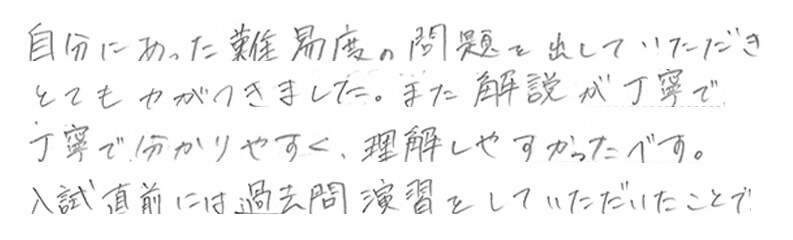 自分にあった難易度の問題を出していただき
とても力がつきました。また解説が丁寧で
丁寧で分かりやすく、理解しやすかったです。
入試直前には過去問演習をしていただいたことで